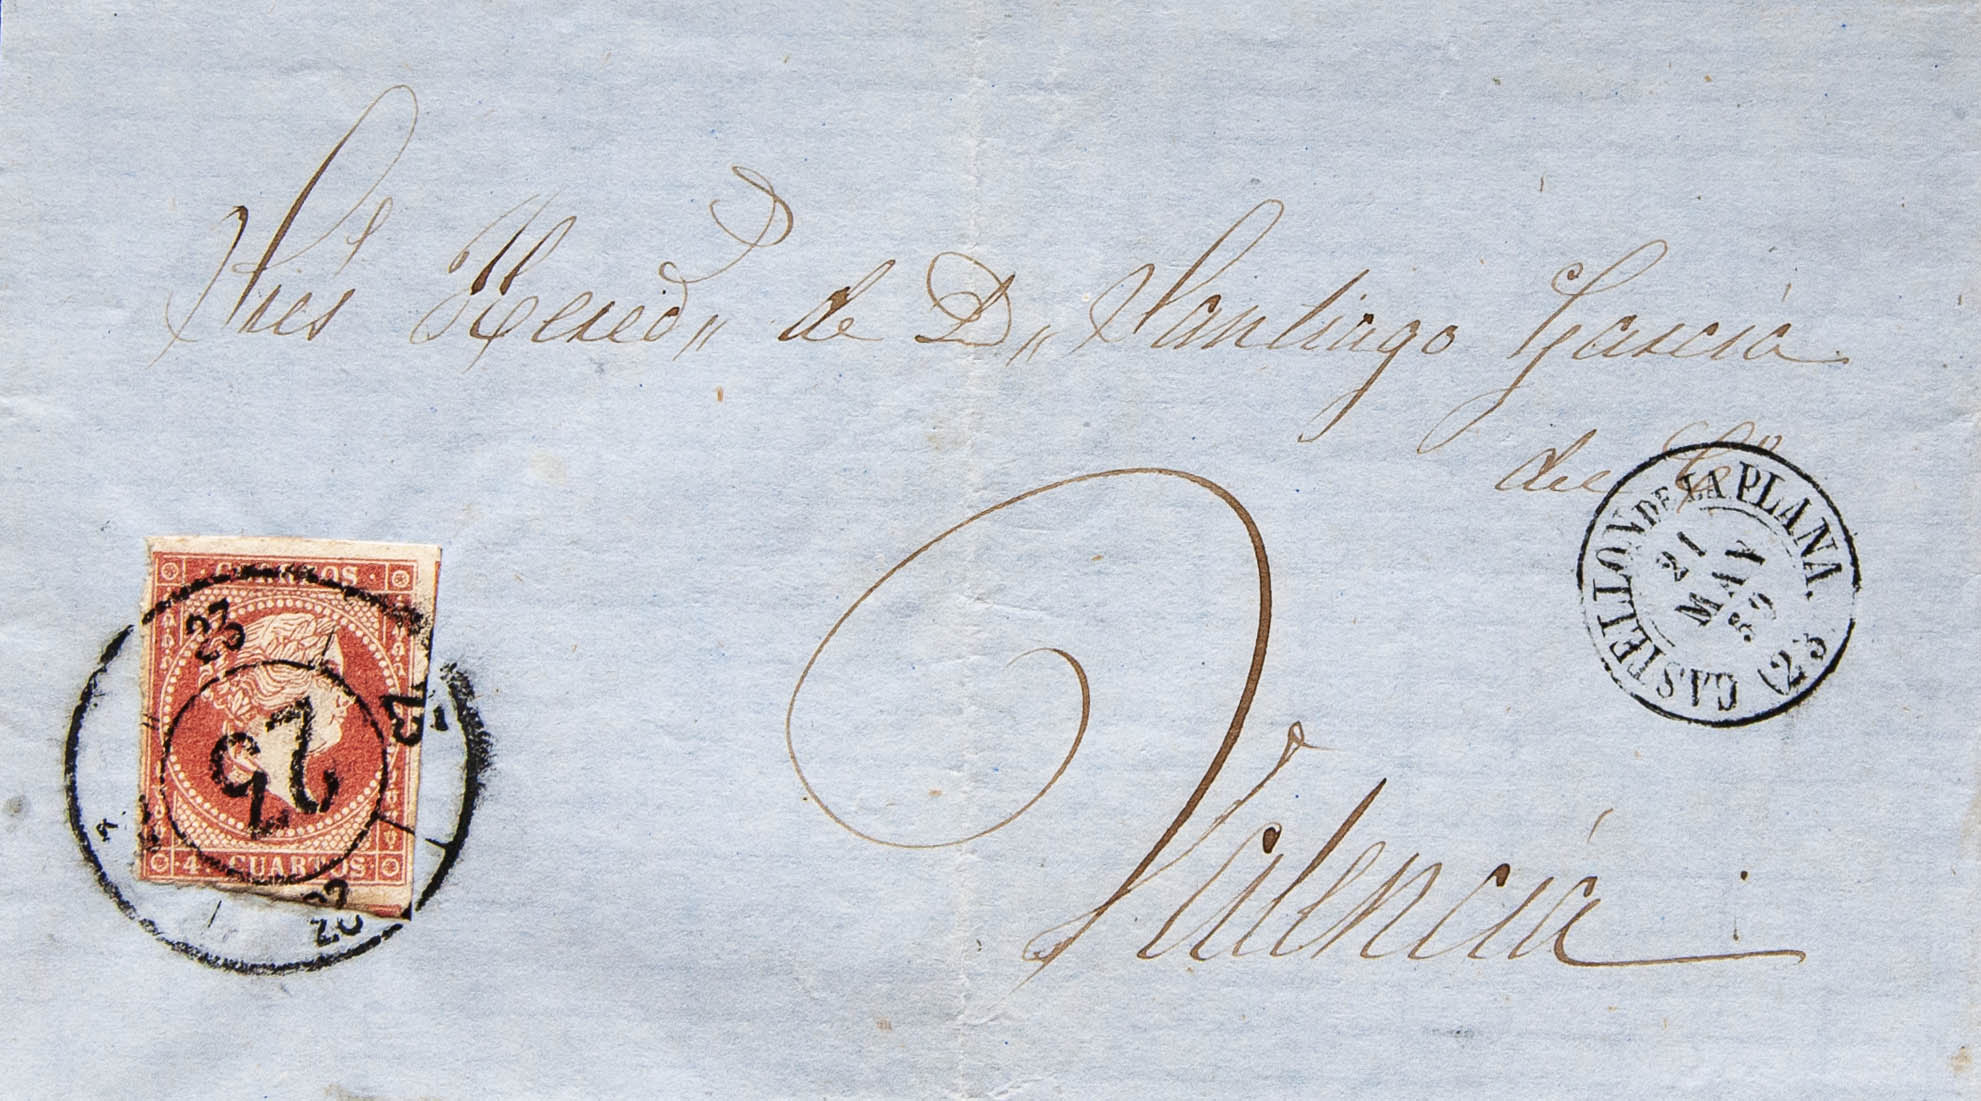 Sres Hered,, de D,, Santiago García
del Cº
Valencia
CORREOS
4 CUARTOS
23
23
23
23
CASTELLON DE LA PLANA.
21
MAR
(23)